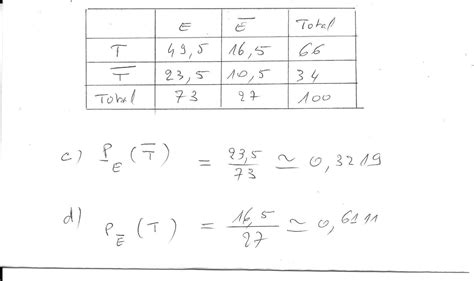 E E̅ Total
T 49,5 16,5 66
T̅ 23,5 10,5 34
Total 73 27 100
c) P_E (T̅) = 23,5/73 ≃ 0,3219
d) P_E̅ (T) = 16,5/27 ≃ 0,6111